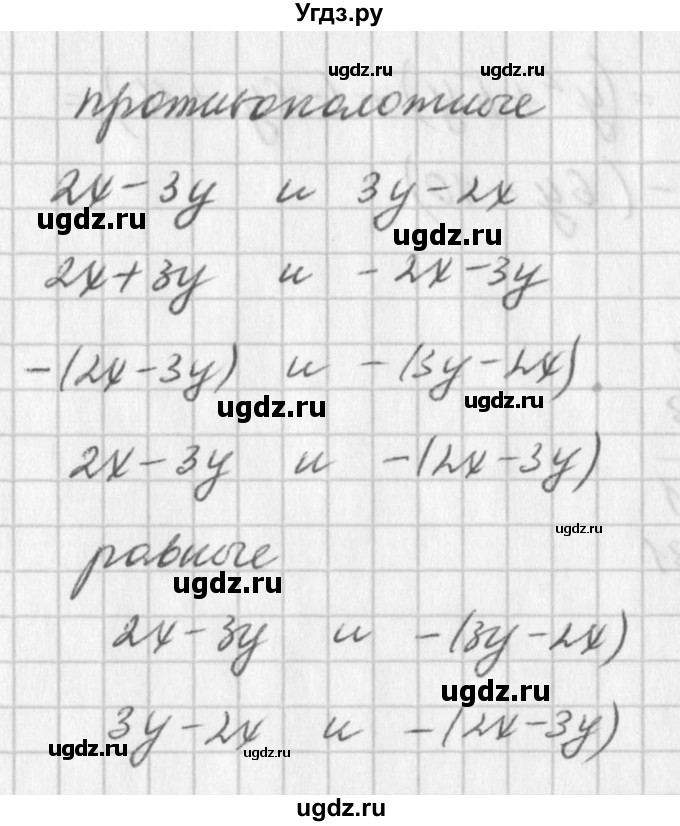 Угдз.ру
ugdz.ru
ugdz.ru
противоположные
2x-3y и 3y-2x
ugdz.ru
ugdz.ru
2x+3y и -2x-3y
-(2x-3y) и -(3y-2x)
ugdz.ru
ugdz.ru
2x-3y и -(2x-3y)
ugdz.ru
равные
ugdz.ru
2x-3y и -(3y-2x)
ugdz.ru
3y-2x и -(2x-3y)
ugdz.ru
ugdz.ru
ugdz.ru